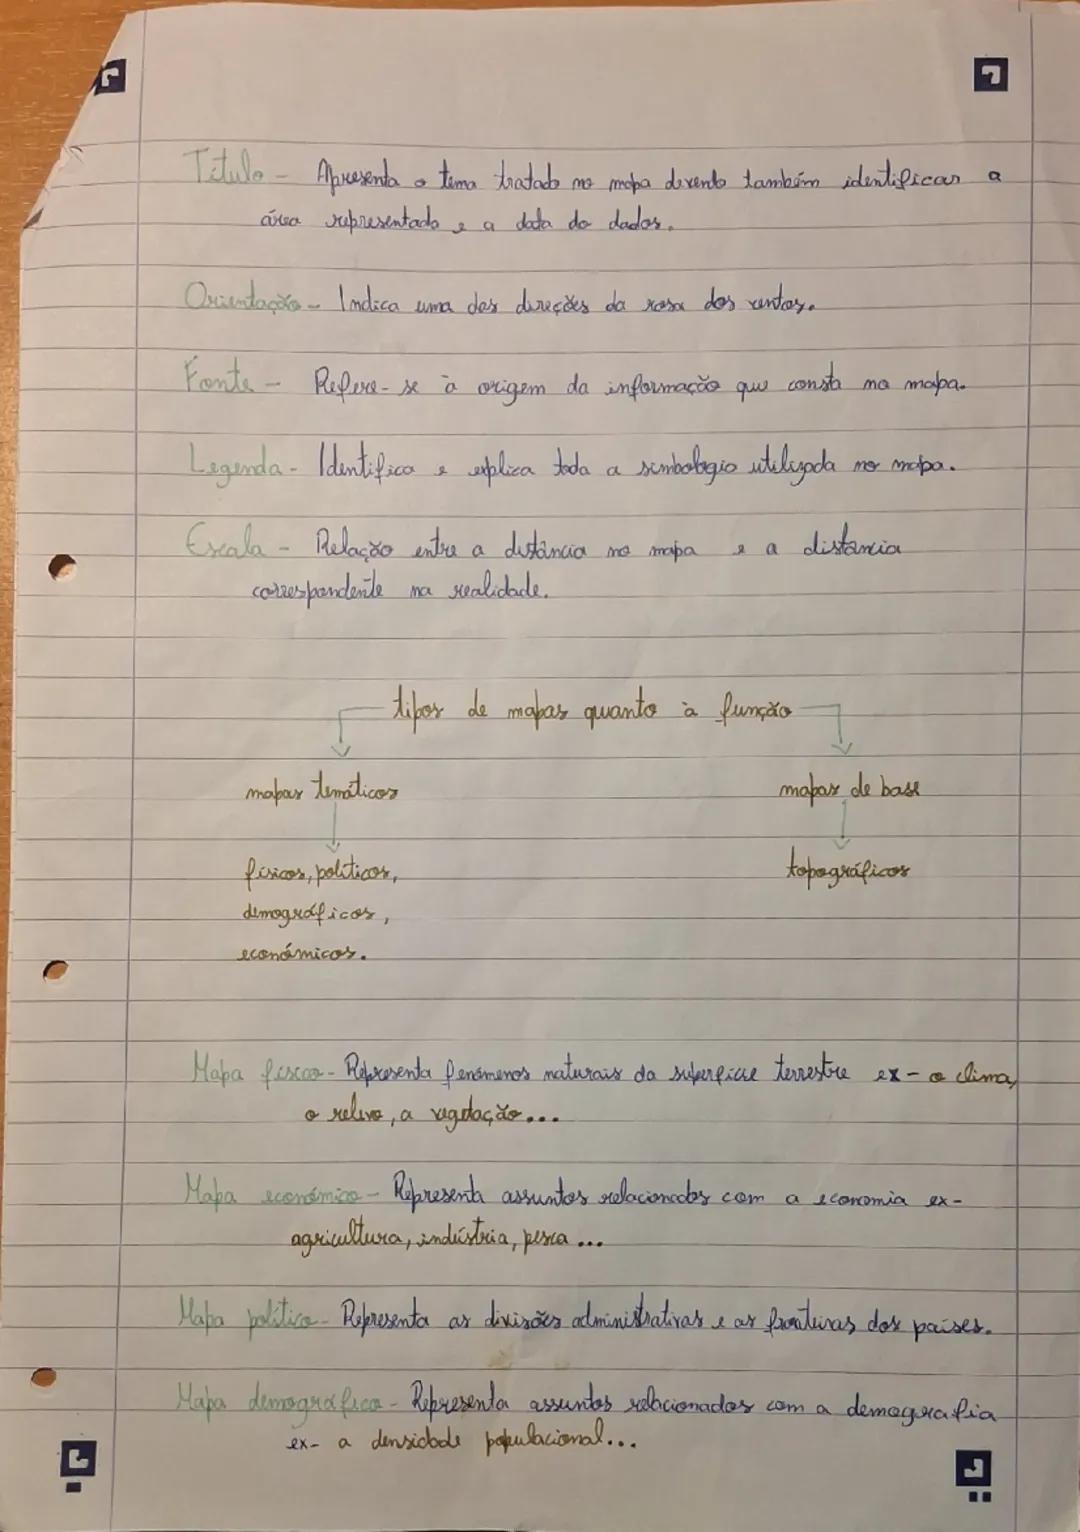 Título - Apresenta o tema tratado no mapa devendo também identificar a
área representada e a data do dados.
Orientação - Indica uma das direções da rosa dos ventos.
Fonte - Refere-se à origem da informação que consta no mapa.
Legenda - Identifica e explica toda a simbologia utilizada no mapa.
Escala - Relação entre a distância no mapa e a distancia
correspondente na realidade.
tipos de mapas quanto à função
mapas temáticos
mapas de base
físicos, políticos,
topográficos
demográficos,
económicos.
Mapa físico - Representa fenómenos naturais da superfície terrestre ex - o clima,
o relevo, a vegetação...
Mapa económico - Representa assuntos relacionados com a economia ex-
agricultura, indústria, pesca ...
Mapa político - Representa as divisões administrativas e as fronteiras dos países.
Mapa demográfico - Representa assuntos relacionados com a demografia
ex- a densidade populacional...